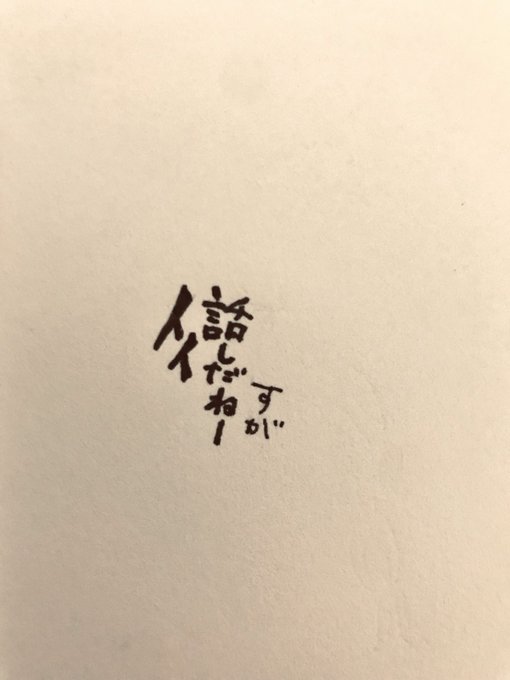 イイ
話しだねー
すが